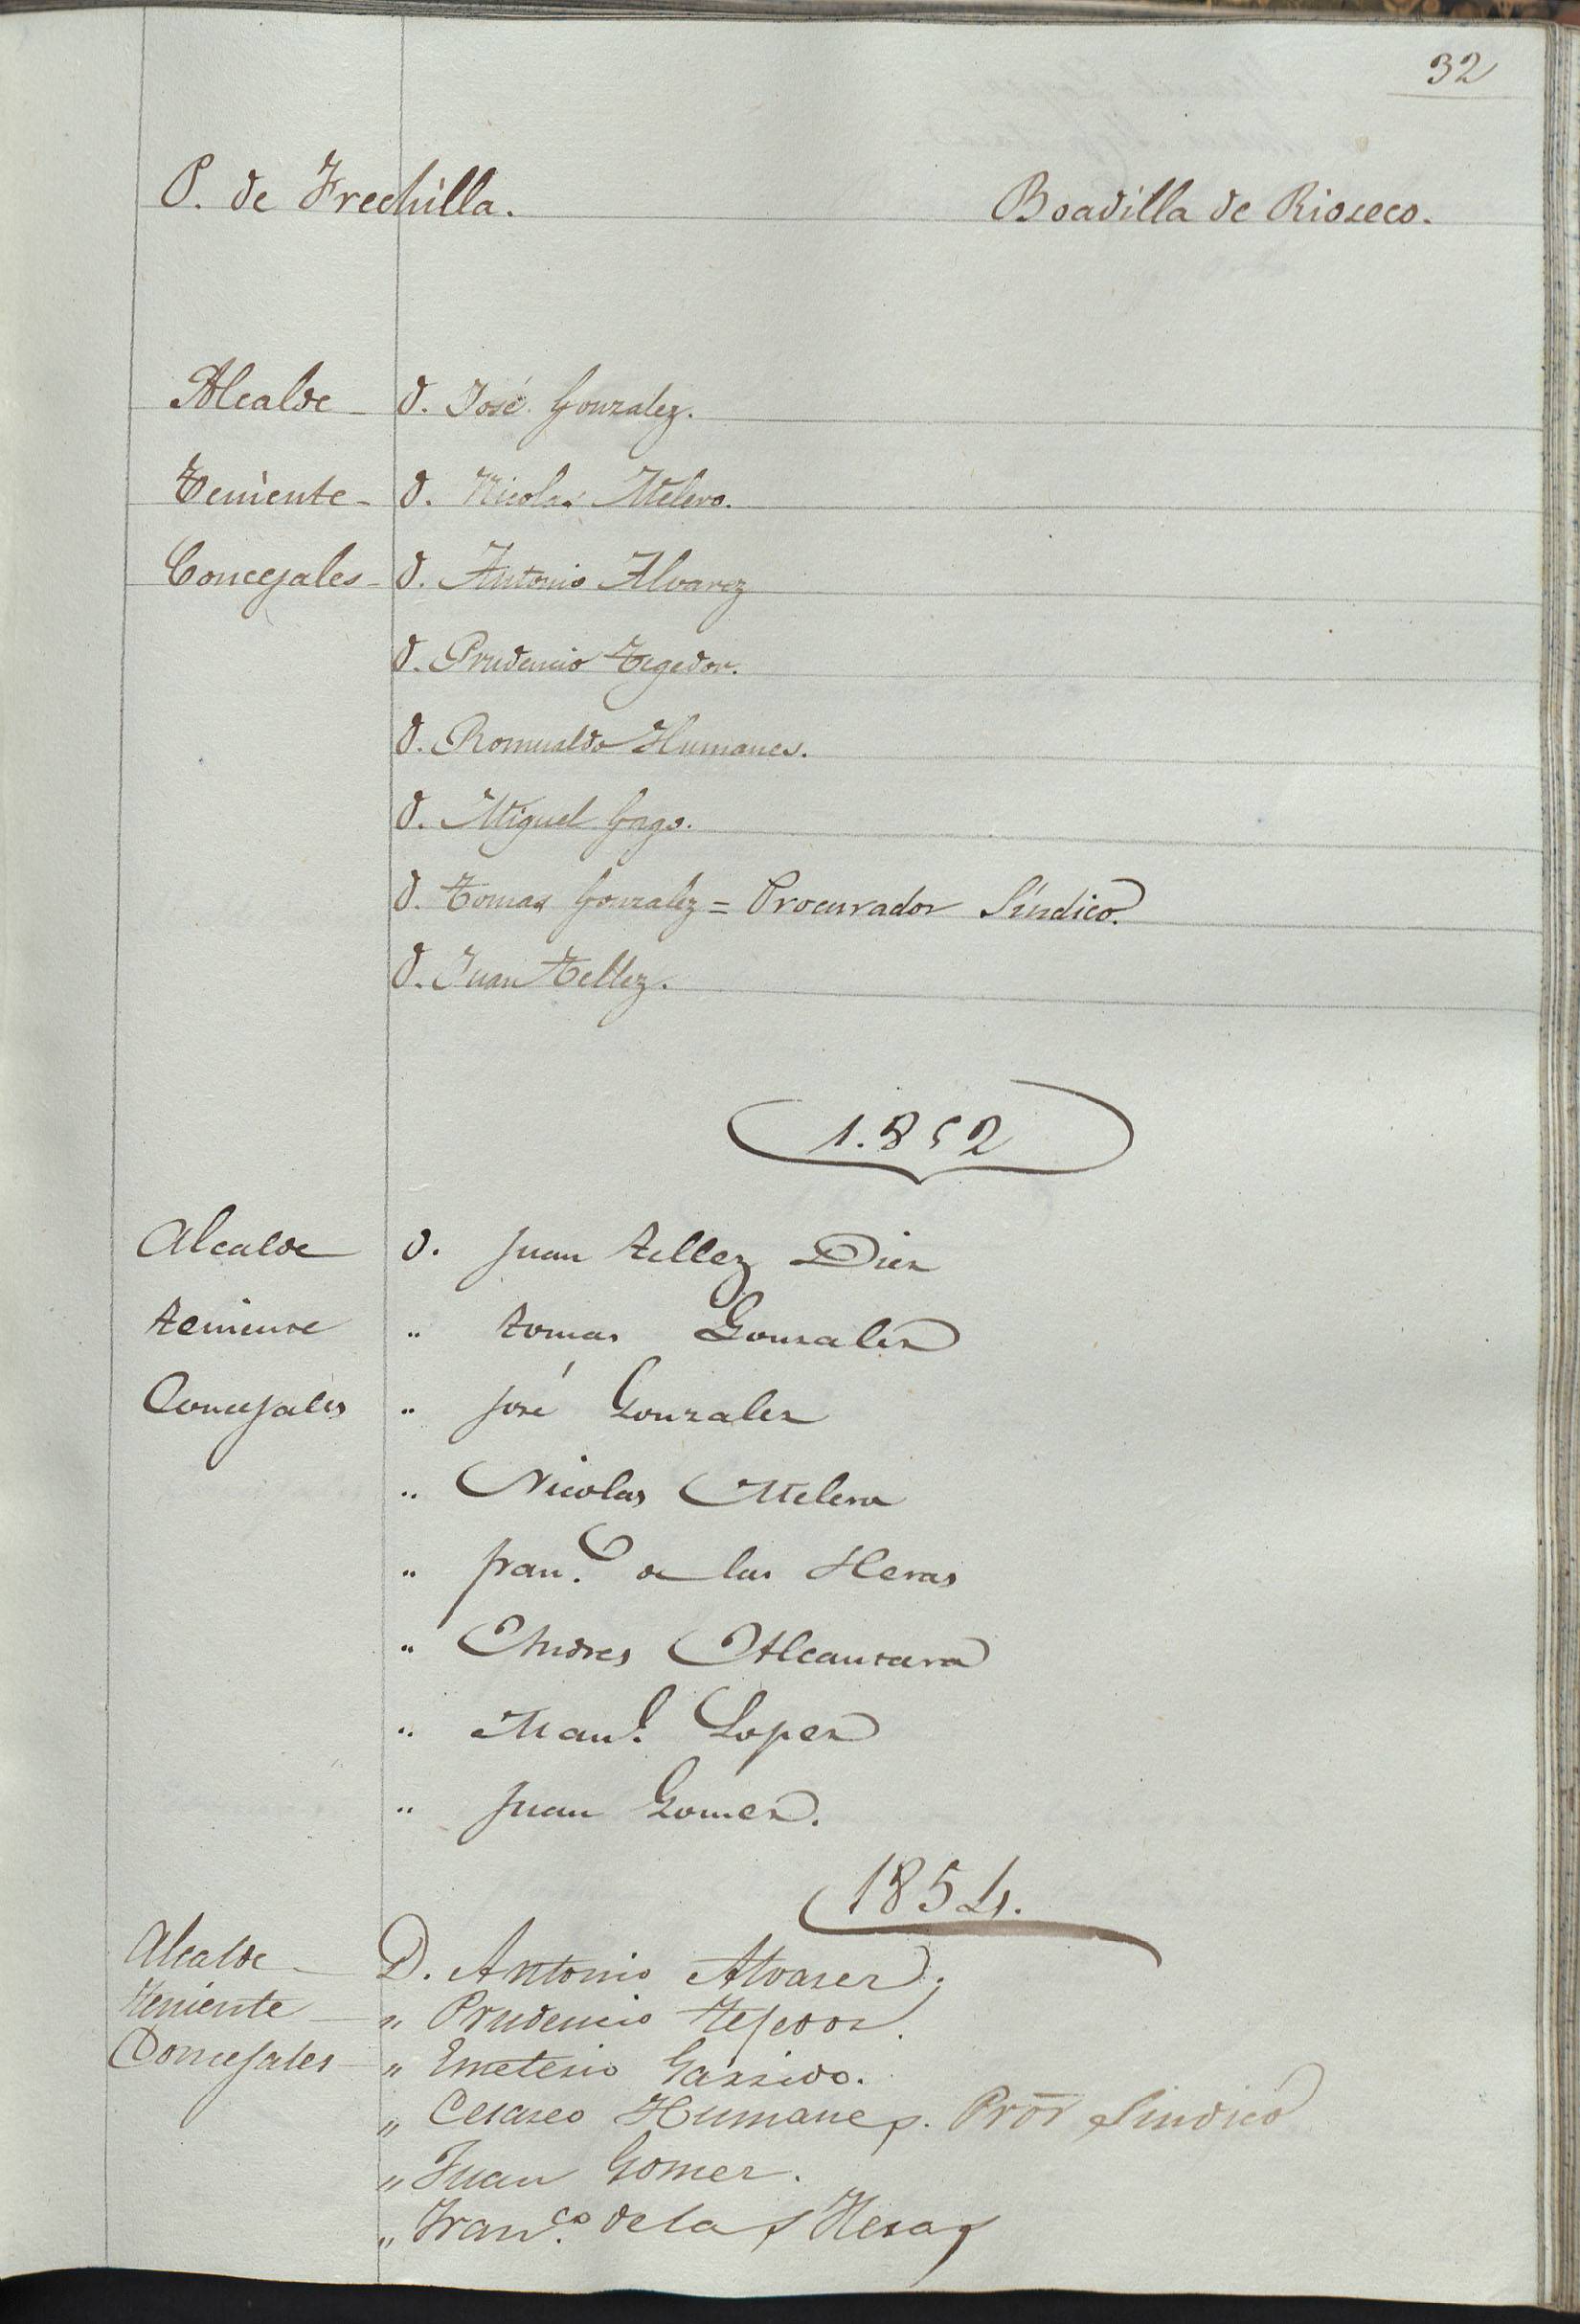 32
P. de Frechilla. Boadilla de Rioseco.
Alcalde - D. José Gonzalez.
Teniente - D. Nicolas Melero.
Concejales - D. Antonio Alvarez
D. Prudencio Tegedor.
D. Romualdo Humanes.
D. Miguel Gago.
D. Tomas Gonzalez = Procurador Síndico.
D. Juan Tellez.
1.852
Alcalde D. Juan tellez Diez
teniente " tomas Gonzalez
Concejales " José Gonzalez
" Nicolas Melero
" Fran.co de las Heras
" Andres Alcantara
" Man.l Lopez
" Juan Gomez.
1854.
Alcalde - D. Antonio Alvarez;
Teniente - " Prudencio Tejedor.
Concejales - " Emeterio Garrido.
" Cesareo Humanes. Pror Sindico
" Juan Gomez.
" Fran.co de las Heras